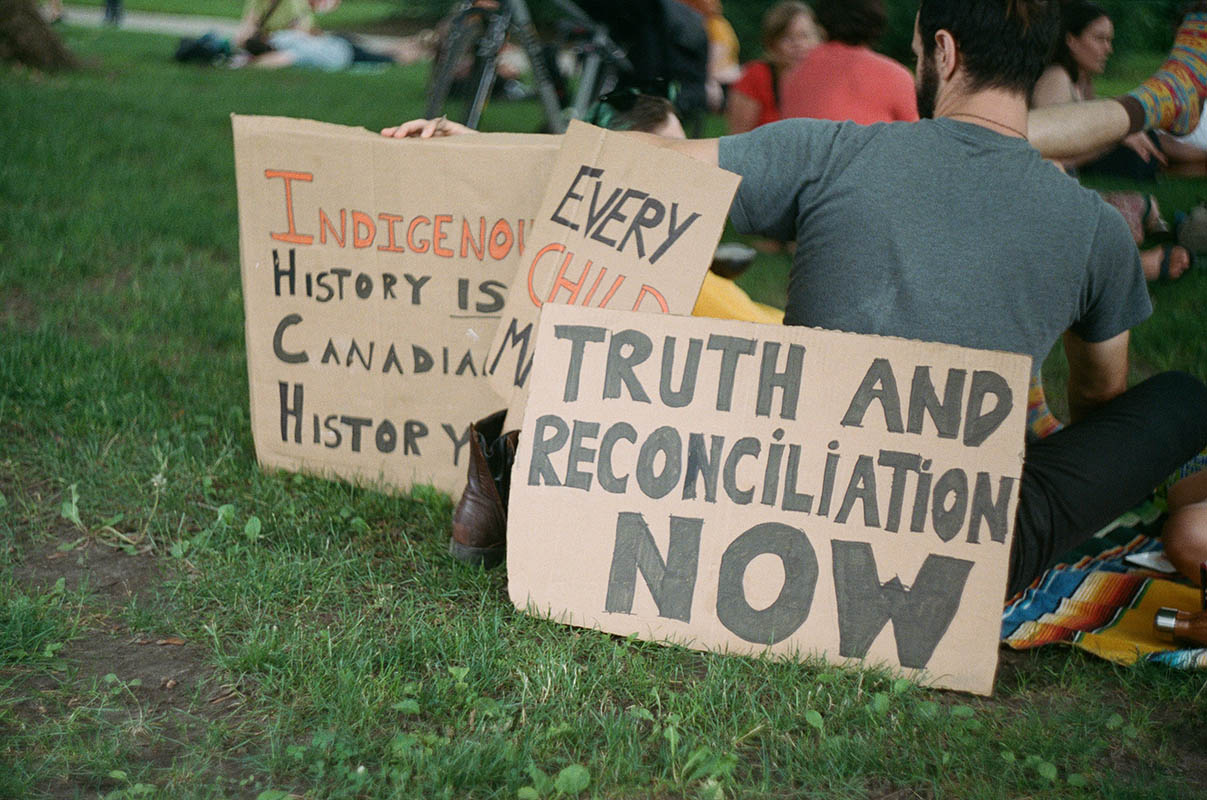 INDIGENOU
HISTORY IS
CANADIA
HISTORY
EVERY
CHILD
M
TRUTH AND
RECONCILIATION
NOW